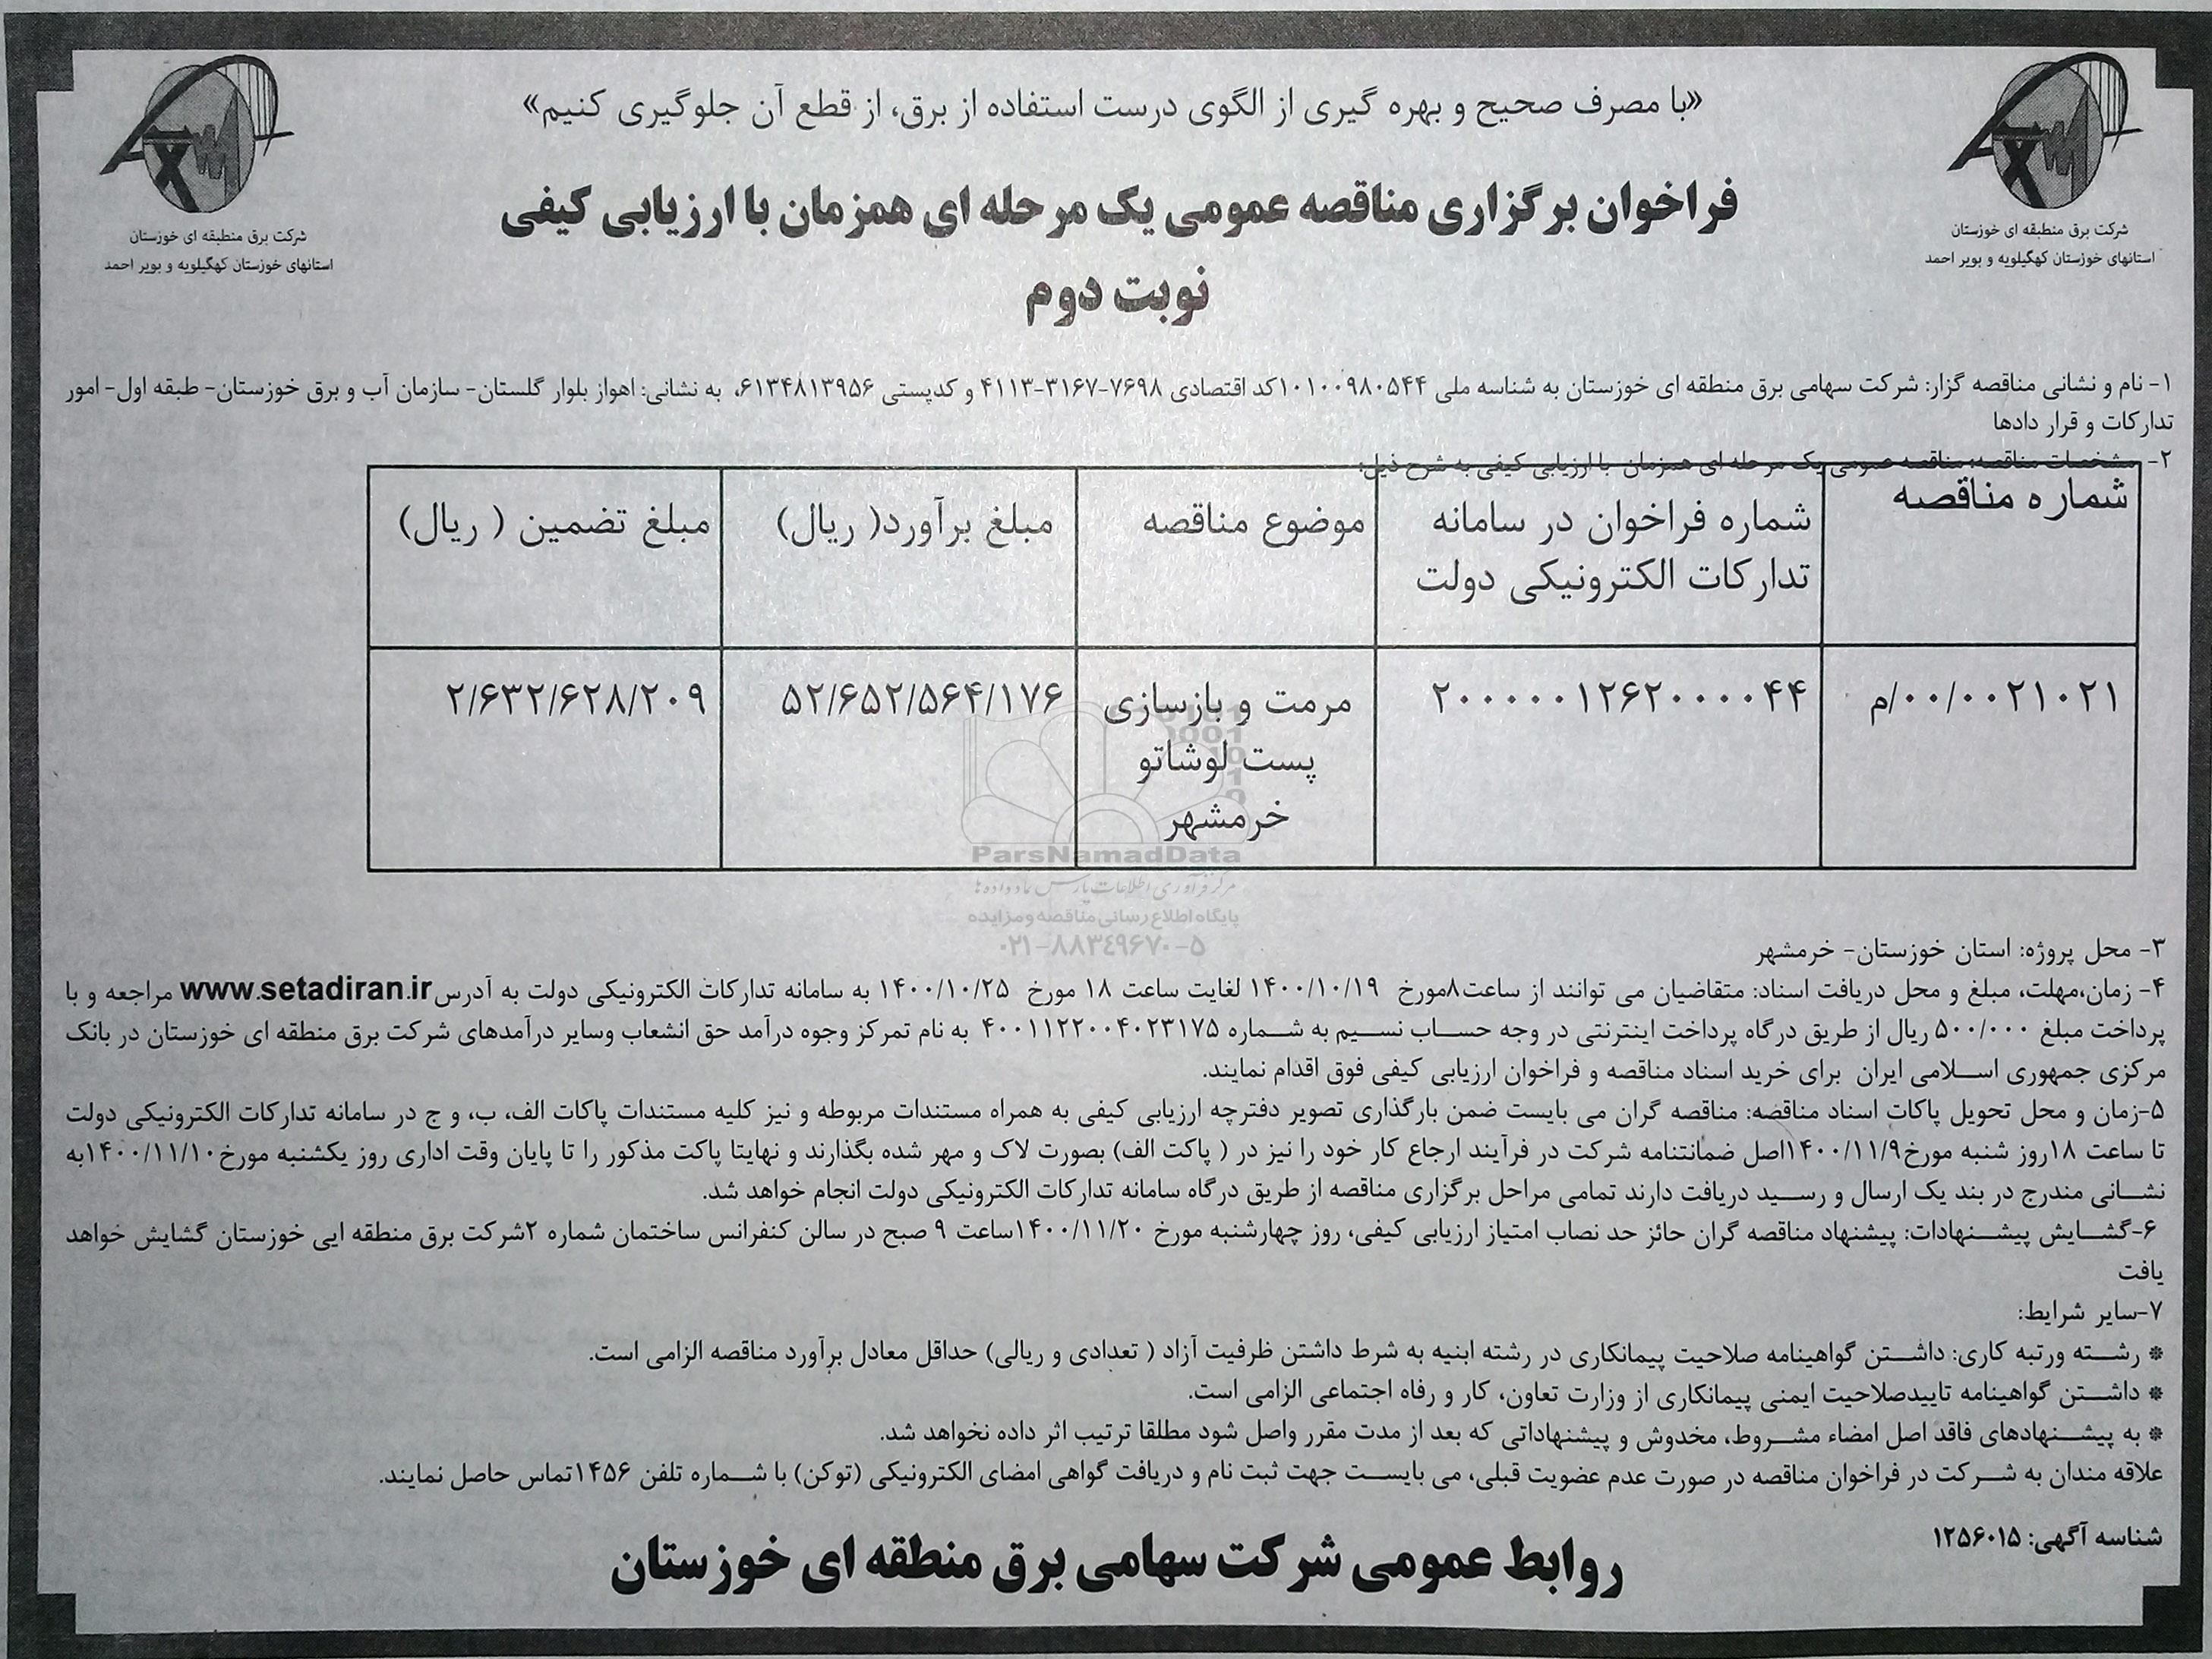 «با مصرف صحیح و بهره گیری از الگوی درست استفاده از برق، از قطع آن جلوگیری کنیم»
فراخوان برگزاری مناقصه عمومی یک مرحله ای همزمان با ارزیابی کیفی
نوبت دوم
شرکت برق منطبقه ای خوزستان
استانهای خوزستان کهگیلویه و بویر احمد
شرکت برق منطبقه ای خوزستان
استانهای خوزستان کهگیلویه و بویر احمد
۱- نام و نشانی مناقصه گزار: شرکت سهامی برق منطقه ای خوزستان به شناسه ملی ۱۰۱۰۰۹۸۰۵۴۴کد اقتصادی ۷۶۹۸-۳۱۶۷-۴۱۱۳ و کدپستی ۶۱۳۴۸۱۳۹۵۶، به نشانی: اهواز بلوار گلستان- سازمان آب و برق خوزستان- طبقه اول- امور
تدارکات و قرار دادها
۲- مشخصات مناقصه: مناقصه عمومی یک مرحله ای همزمان با ارزیابی کیفی به شرح ذیل:
شماره مناقصه
شماره فراخوان در سامانه
تدارکات الکترونیکی دولت
موضوع مناقصه
مبلغ برآورد( ریال)
مبلغ تضمین ( ریال)
۰۰/۰۰۲۱۰۲۱/م
۲۰۰۰۰۰۱۲۶۲۰۰۰۰۴۴
مرمت و بازسازی
پست لوشاتو
خرمشهر
۵۲/۶۵۲/۵۶۴/۱۷۶
۲/۶۳۲/۶۲۸/۲۰۹
ParsNamadData
مرکز فرآوری اطلاعات پارس نماد داده ها
پایگاه اطلاع رسانی مناقصه و مزایده
۰۲۱-۸۸۳۴۹۶۷۰-۵
۳- محل پروژه: استان خوزستان- خرمشهر
۴- زمان،مهلت، مبلغ و محل دریافت اسناد: متقاضیان می توانند از ساعت۸مورخ ۱۴۰۰/۱۰/۱۹ لغایت ساعت ۱۸ مورخ ۱۴۰۰/۱۰/۲۵ به سامانه تدارکات الکترونیکی دولت به آدرس www.setadiran.ir مراجعه و با
پرداخت مبلغ ۵۰۰/۰۰۰ ریال از طریق درگاه پرداخت اینترنتی در وجه حساب نسیم به شماره ۴۰۰۱۱۲۲۰۰۴۰۲۳۱۷۵ به نام تمرکز وجوه درآمد حق انشعاب وسایر درآمدهای شرکت برق منطقه ای خوزستان در بانک
مرکزی جمهوری اسلامی ایران برای خرید اسناد مناقصه و فراخوان ارزیابی کیفی فوق اقدام نمایند.
۵-زمان و محل تحویل پاکات اسناد مناقصه: مناقصه گران می بایست ضمن بارگذاری تصویر دفترچه ارزیابی کیفی به همراه مستندات مربوطه و نیز کلیه مستندات پاکات الف، ب، و ج در سامانه تدارکات الکترونیکی دولت
تا ساعت ۱۸روز شنبه مورخ۱۴۰۰/۱۱/۹اصل ضمانتنامه شرکت در فرآیند ارجاع کار خود را نیز در ( پاکت الف) بصورت لاک و مهر شده بگذارند و نهایتا پاکت مذکور را تا پایان وقت اداری روز یکشنبه مورخ۱۴۰۰/۱۱/۱۰به
نشانی مندرج در بند یک ارسال و رسید دریافت دارند تمامی مراحل برگزاری مناقصه از طریق درگاه سامانه تدارکات الکترونیکی دولت انجام خواهد شد.
۶-گشایش پیشنهادات: پیشنهاد مناقصه گران حائز حد نصاب امتیاز ارزیابی کیفی، روز چهارشنبه مورخ ۱۴۰۰/۱۱/۲۰ساعت ۹ صبح در سالن کنفرانس ساختمان شماره ۲شرکت برق منطقه ایی خوزستان گشایش خواهد
یافت
۷-سایر شرایط:
* رشته ورتبه کاری: داشتن گواهینامه صلاحیت پیمانکاری در رشته ابنیه به شرط داشتن ظرفیت آزاد ( تعدادی و ریالی) حداقل معادل برآورد مناقصه الزامی است.
* داشتن گواهینامه تاییدصلاحیت ایمنی پیمانکاری از وزارت تعاون، کار و رفاه اجتماعی الزامی است.
* به پیشنهادهای فاقد اصل امضاء مشروط، مخدوش و پیشنهاداتی که بعد از مدت مقرر واصل شود مطلقا ترتیب اثر داده نخواهد شد.
علاقه مندان به شرکت در فراخوان مناقصه در صورت عدم عضویت قبلی، می بایست جهت ثبت نام و دریافت گواهی امضای الکترونیکی (توکن) با شماره تلفن ۱۴۵۶تماس حاصل نمایند.
شناسه آگهی: ۱۲۵۶۰۱۵
روابط عمومی شرکت سهامی برق منطقه ای خوزستان